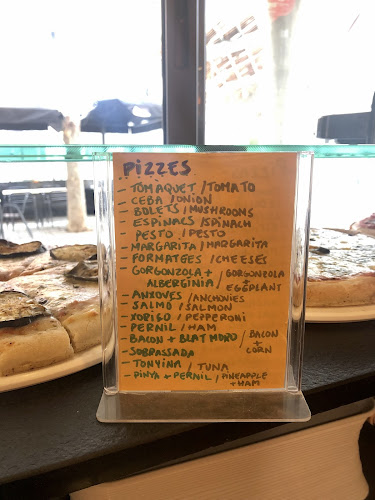 PIZZES
- TOMAQUET / TOMATO
- CEBA / ONION
- BOLETS / MUSHROOMS
- ESPINACS / SPINACH
- PESTO / PESTO
- MARGARITA / MARGARITA
- FORMATGES / CHEESES
- GORGONZOLA + ALBERGINIA / GORGONZOLA + EGGPLANT
- ANXOVES / ANCHOVIES
- SALMO / SALMON
- XORIGO / PEPPERONI
- PERNIL / HAM
- BACON + BLAT MORO / BACON + CORN
- SOBRASSADA
- TONYINA / TUNA
- PINYA + PERNIL / PINEAPPLE + HAM